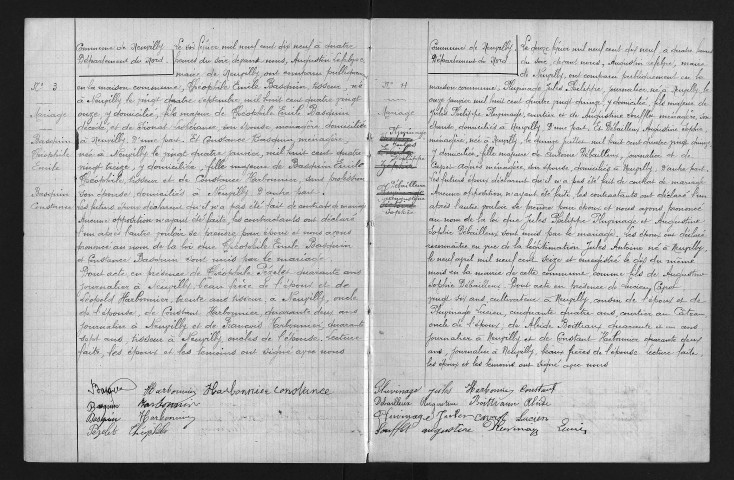 Commune de Neuvilly
Département du Nord.
N° 3
Mariage
Basquin
Théophile
Emile
Basquin
Constance
Le six février mil neuf cent dix neuf à quatre
heures du soir, devant nous, Augustin Lefebvre,
maire de Neuvilly, ont comparu publiquement
en la maison commune, Théophile Emile Basquin, tisseur, né
à Neuvilly le vingt quatre septembre mil huit cent quatre vingt
onze, y domicilié, fils majeur de Théophile Emile Basquin
décédé, et de son épouse ménagère domiciliée
à Neuvilly, d'une part. Et Constance Basquin, ménagère,
née à Neuvilly le vingt quatre janvier, mil huit cent quatre
vingt treize, y domiciliée, fille majeure de Basquin Emile
Théophile, tisseur et de Constance Harbonnier, sans profession
son épouse domiciliés à Neuvilly d'autre part.
Les futurs époux déclarent qu'il n'a pas été fait de contrat de mariage
Aucune opposition n'ayant été faite, les contractants ont déclaré
l'un après l'autre vouloir se prendre pour époux et nous avons
prononcé au nom de la loi que Théophile Emile Basquin
et Constance Basquin sont unis par le mariage.
Dont acte en présence de Théophile Pézelet quarante ans
journalier à Neuvilly, beau frère de l'époux et de
Léopold Harbonnier, trente ans tisseur, à Neuvilly, oncle
de l'épouse, de Constant Harbonnier, quarante deux ans
journalier à Neuvilly et de François Harbonnier, quarante
sept ans, tisseur à Neuvilly, oncles de l'épouse. Lecture
faite, les époux et les témoins ont signé avec nous
Basquin Harbonnier Harbonnier constance
Basquin Harbonnier
Basquin Harbonnier
Pézelet Théophile
Commune de Neuvilly
Département du Nord.
N° 4
Mariage
Le douze février mil neuf cent dix neuf à quatre heures
du soir, devant nous, Augustin Lefebvre, maire
de Neuvilly, ont comparu publiquement en la
maison commune, Pluvinage Jules Philippe, journalier né à Neuvilly, le
onze janvier mil huit cent quatre vingt douze, y domicilié, fils majeur de
Jules Philippe Pluvinage, courtier et de Augustine Soufflet ménagère, son
épouse, domiciliés à Neuvilly, d'une part. Et Débailleux Augustine Sophie,
ménagère, née à Neuvilly, le quinze juillet mil huit cent quatre vingt douze,
y domiciliée, fille majeure de Antoine Débailleux, journalier et de
ménagère, son épouse, domiciliés à Neuvilly, d'autre part.
Les futurs époux déclarent qu'il n'a pas été fait de contrat de mariage
Aucune opposition n'ayant été faite, les contractants ont déclaré l'un
après l'autre vouloir se prendre pour époux, et nous avons prononcé
au nom de la loi que Jules Philippe Pluvinage et Augustine
Sophie Débailleux sont unis par le mariage. Les époux ont déclaré
reconnaître en vue de la légitimation Jules Antoine né à Neuvilly,
le neuf avril mil neuf cent seize et enregistré le dix du même
mois en la mairie de cette commune comme fils de Augustine
Sophie Débailleux. Dont acte en présence de Lucien
vingt six ans, cultivateur à Neuvilly cousin de l'époux et de
Pluvinage Lucien, cinquante quatre ans, courtier au Cateau,
oncle de l'époux, de Alcide Bottiaux quarante et un ans
journalier à Neuvilly et de Constant Harbonnier quarante deux
ans, journalier à Neuvilly, beaux frères de l'épouse. Lecture faite,
les époux et les témoins ont signé avec nous
Pluvinage Jules Harbonnier Constant
Débailleux Augustine Bottiaux Alcide
Pluvinage Jules Lucien
Soufflet augustine Pluvinage Lucien